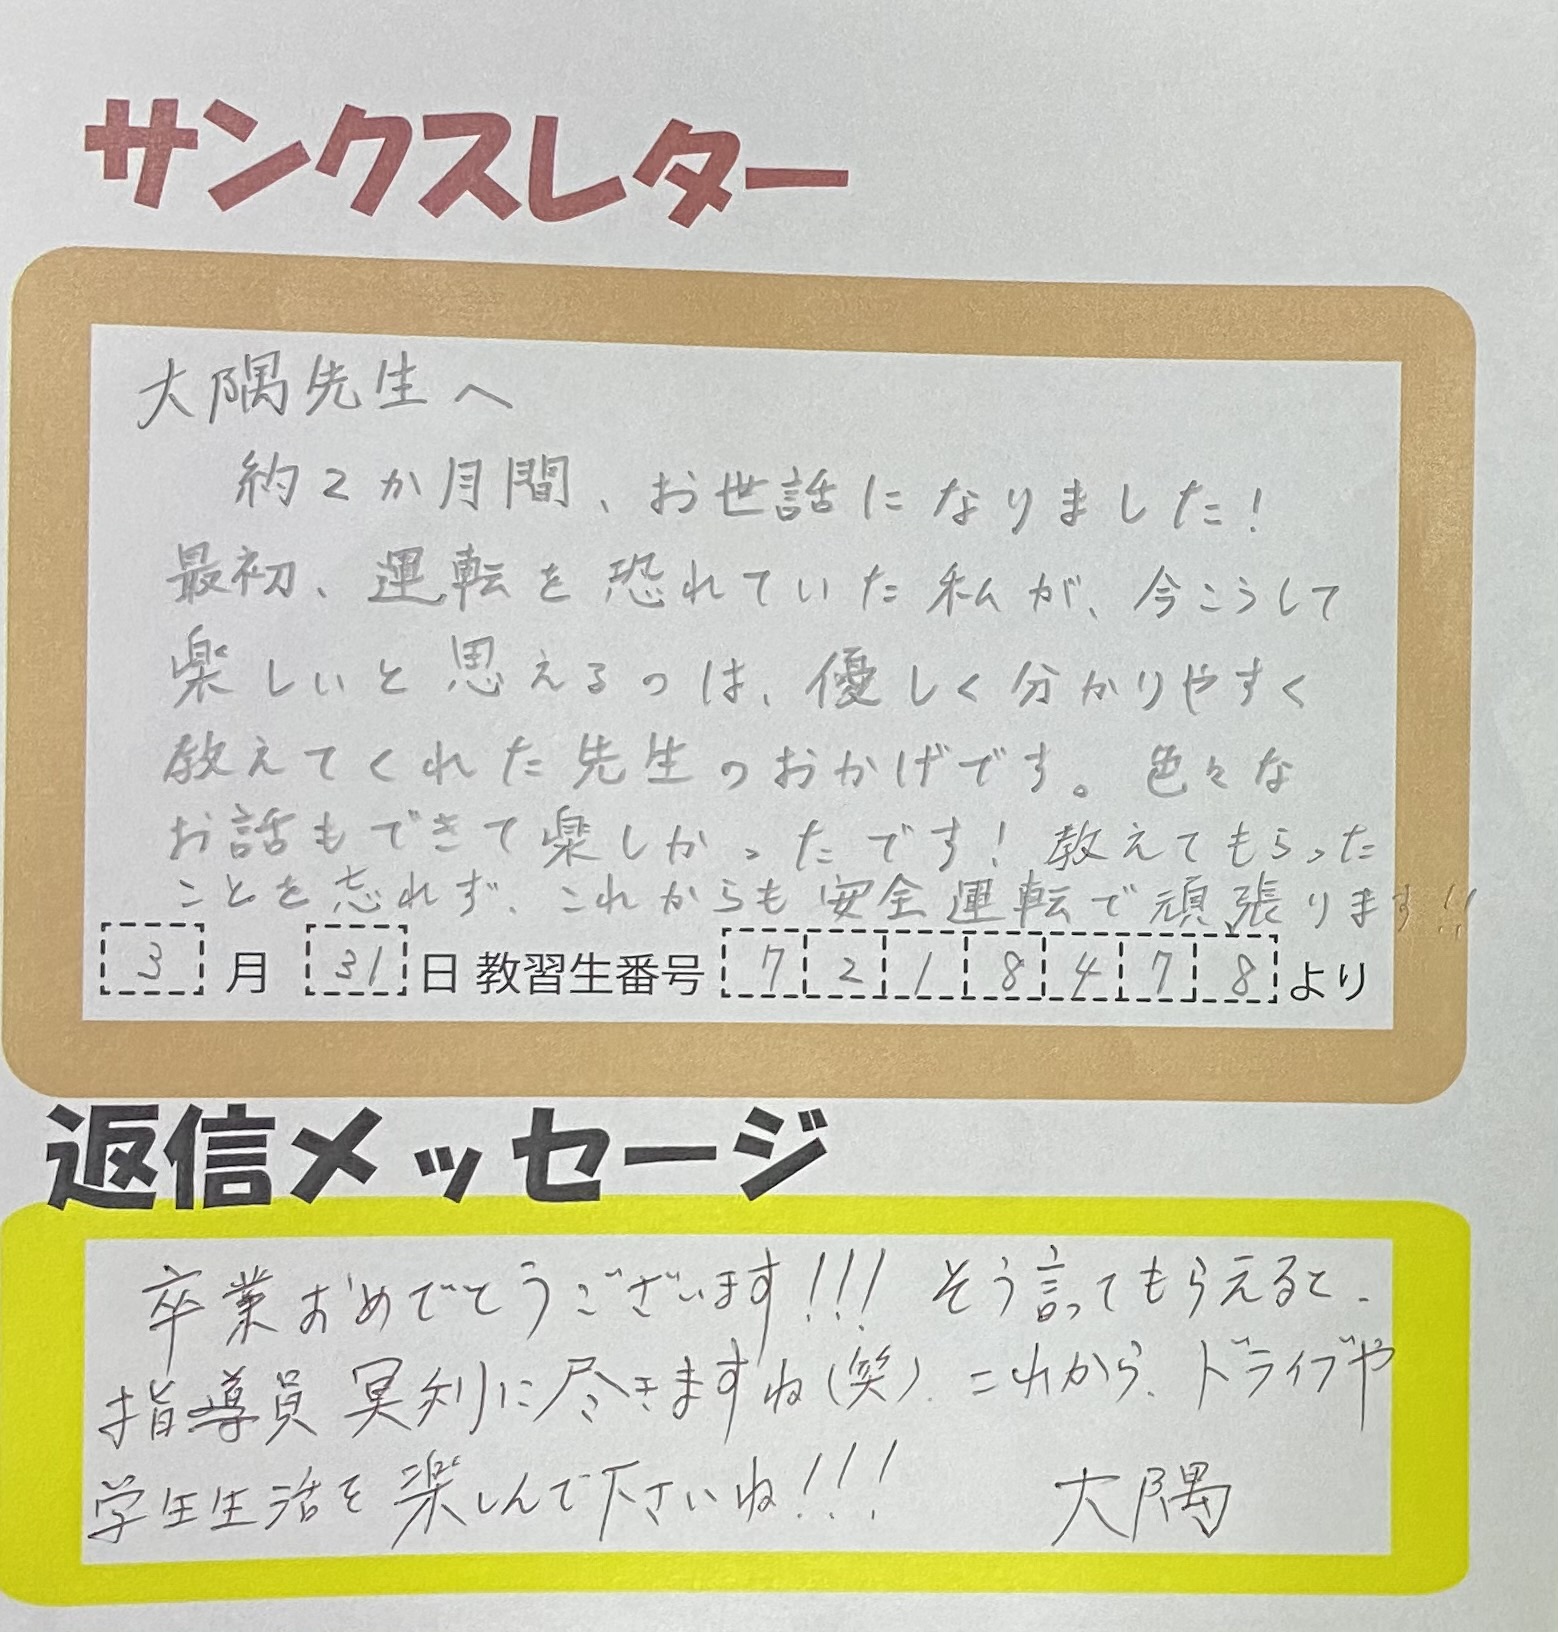 サンクスレター
大隅先生へ
約2か月間、お世話になりました!
最初、運転を恐れていた私が、今こうして
楽しいと思えるのは、優しく分かりやすく
教えてくれた先生のおかげです。色々な
お話もできて楽しかったです!教えてもらった
ことを忘れず、これからも安全運転で頑張ります!!
3月31日 教習生番号 7218478より
返信メッセージ
卒業おめでとうございます!!! そう言ってもらえると、
指導員冥利に尽きますね(笑)、これから、ドライブや
学生生活を楽しんで下さいね!!! 大隅